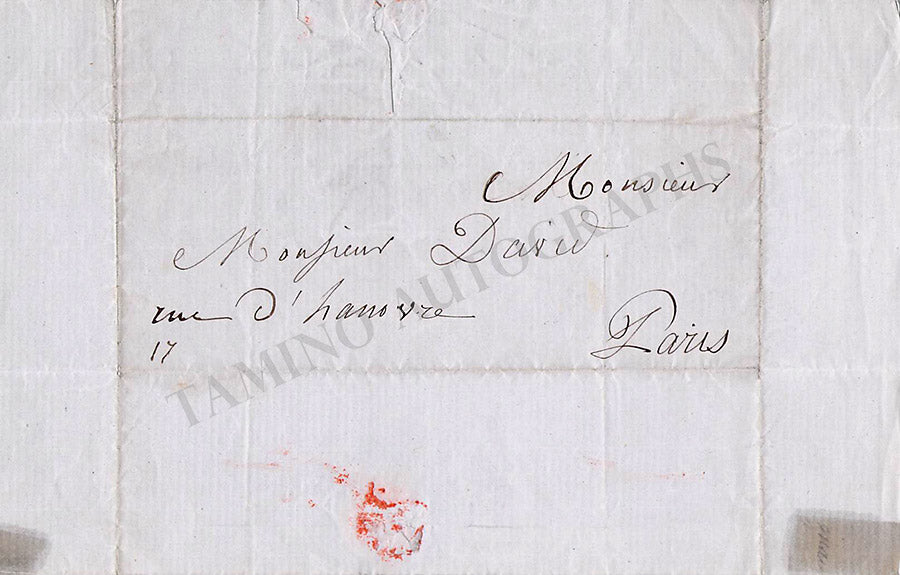 Monsieur
Monsieur David
rue d'hanovre
17
Paris
TAMINO AUTOGRAPHS